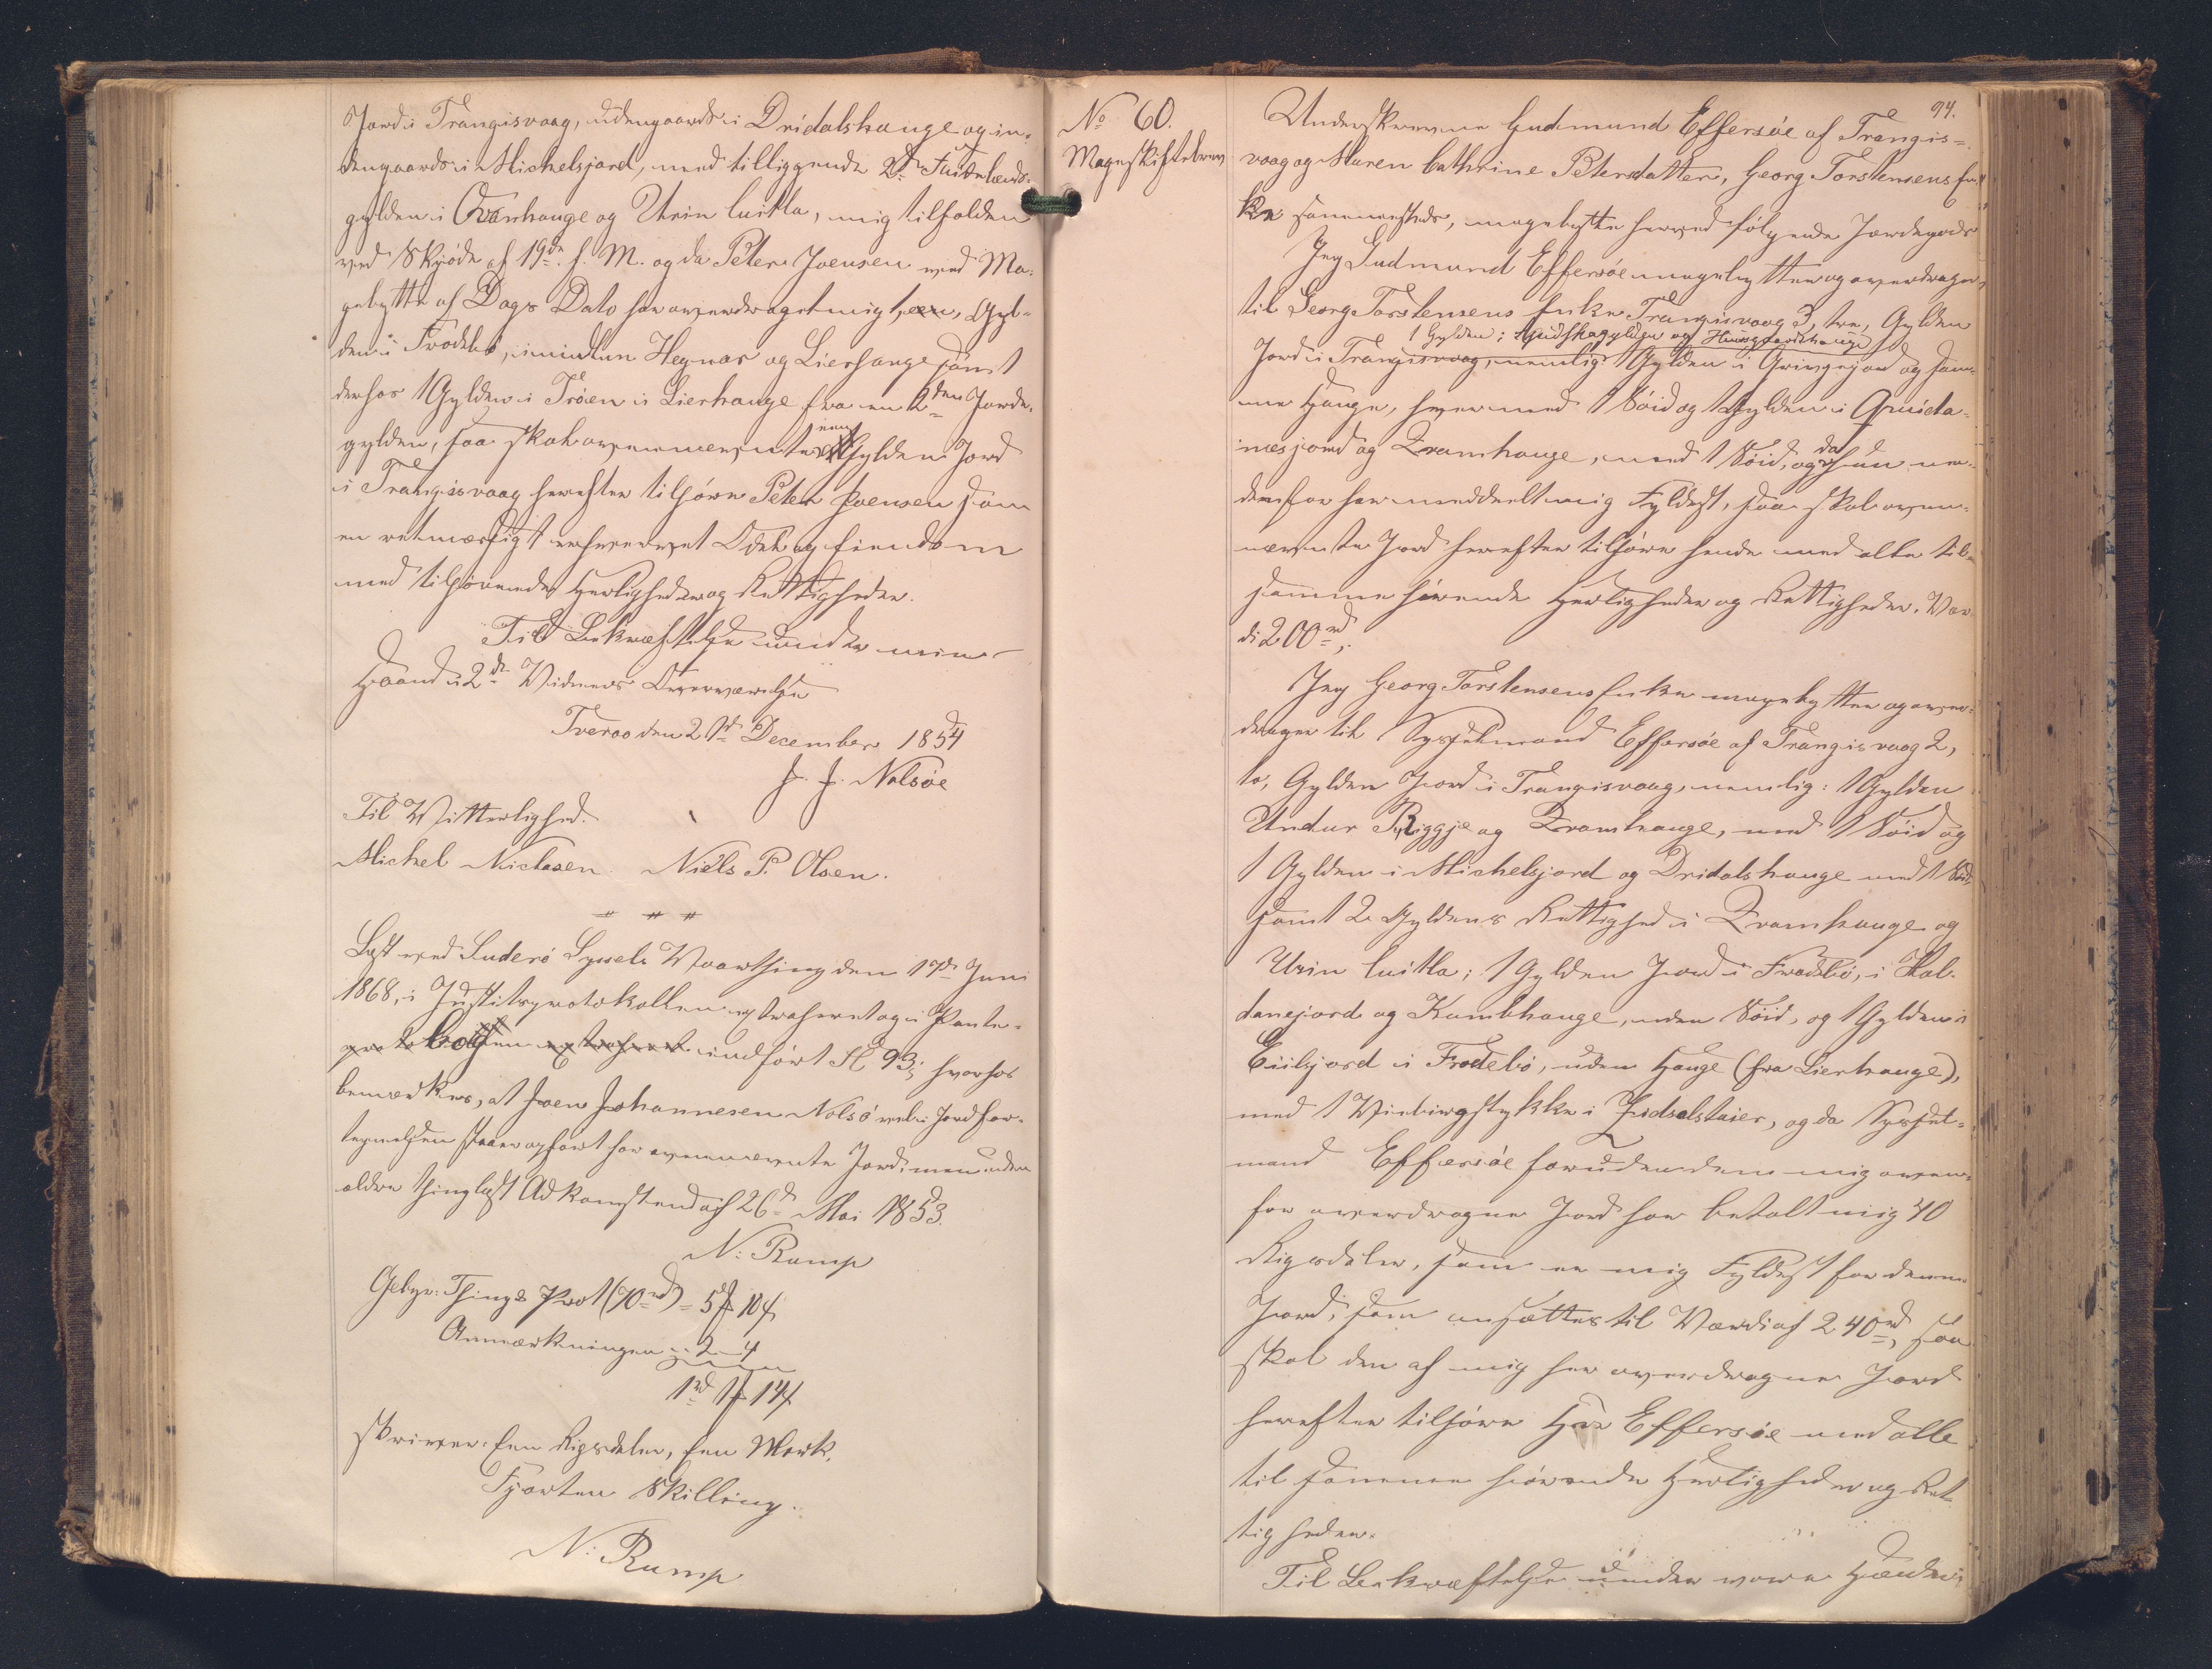 Jord i Trangisvaag, udengaards i Dridalshauge og in-
dengaards i Michelsjord, med tilliggende 2de
gylden i Qvanhauge og Urin luitla, mig tilfalden
ved Skjøde af 19de f. M. og da Peter Joensen ved Ma-
gebytte af Dags Dato har overdraget mig 1, een, Gyl-
den i Frodebø, imidlun Hegnar og Lierhauge samt
derhos 1 Gylden i Trøen i Lierhauge fra en 2den Jorde-
gylden, saa skal ovennævnte een Gylden Jord
i Trangisvaag herefter tilhøre Peter Joensen som
en retmæssigt erhvervet Odel og Eiendom
med tilhørende Herligheder og Rettigheder.
Til Bekræftelse under min
Haand i 2de Vidners Overværelse
Tveraa den 21de December 1854
J. J. Nolsøe
Til Vitterlighed.
Michel Niclasen. Niels P. Olsen.
Læst ved Suderø Syssels Vaarthing den 17de Juni
1868, i Justitsprotokollen extraheret og i Pante-
bogen indført Fol 93; hvorhos
bemærkes, at Joen Johannesen Nolsø vel i Jordfor-
tegnelsen staaer opført for ovennævnte Jord, men uden
ældre thinglæst Adkomst end af 26de Mai 1853.
N: Rump
Gebyr: Things Prot (70rd) = 5 10
Anmærkningen = 2 - 4
1rd 1 14
skriver: Een Rigsdaler, Een Mark,
Fjorten Skilling.
N: Rump
94.
No 60.
Mageskiftebrev
Underskrevne Gudmund Effersøe af Trangis=
vaag og Maren Cathrine Petersdatter, Georg Torstensens En-
ke sammesteds, magebytte herved følgende Jordegods
Jeg Gudmund Effersøe magebytter og overdrager
til Georg Torstensens Enke Trangisvaag 3, tre, Gylden
1 Gylden i og Huusgaardshauge
Jord i Trangisvaag, nemlig 1 Gylden i Gringejord og sam-
me Hauge, hver med 1 Søid og 1 Gylden i Quida-
nesjord og Kramhauge, med 1 Søid, og da hun ne-
denfor har meddeelt mig Fyldest, saa skal oven-
nævnte Jord herefter tilhøre hende med alle til
samme hørende Herligheder og Rettigheder. Vær-
di 200rd.
Jeg Georg Torstensens Enke magebytter og over-
drager til Sysselmand Effersøe af Trangisvaag 2,
to, Gylden Jord i Trangisvaag, nemlig: 1 Gylden
Undur Riggje og Kramhauge, med 1 Søid og
1 Gylden i Michelsjord og Dridalshauge med 1 Søid,
samt 2 Gyldens Rettighed i Kramhauge og
Urin luitla; 1 Gylden Jord i Frodebø, i Hal-
danejord og Kambhauge, uden Søid, og 1 Gylden i
Eiilsjord i Frodebø, uden Hauge (fra Lierhauge),
med 1 i , og da Syssel-
mand Effersøe foruden den mig oven-
for overdragne Jord har betalt mig 40
Rigsdaler, som er mig Fyldest for denne
Jord, som ansættes til Værdi af 240rd, saa
skal den af mig her overdragne Jord
herefter tilhøre Hr Effersøe med alle
til samme hørende Herligheder og Ret-
tigheder.
Til Bekræftelse under vore Hænder i